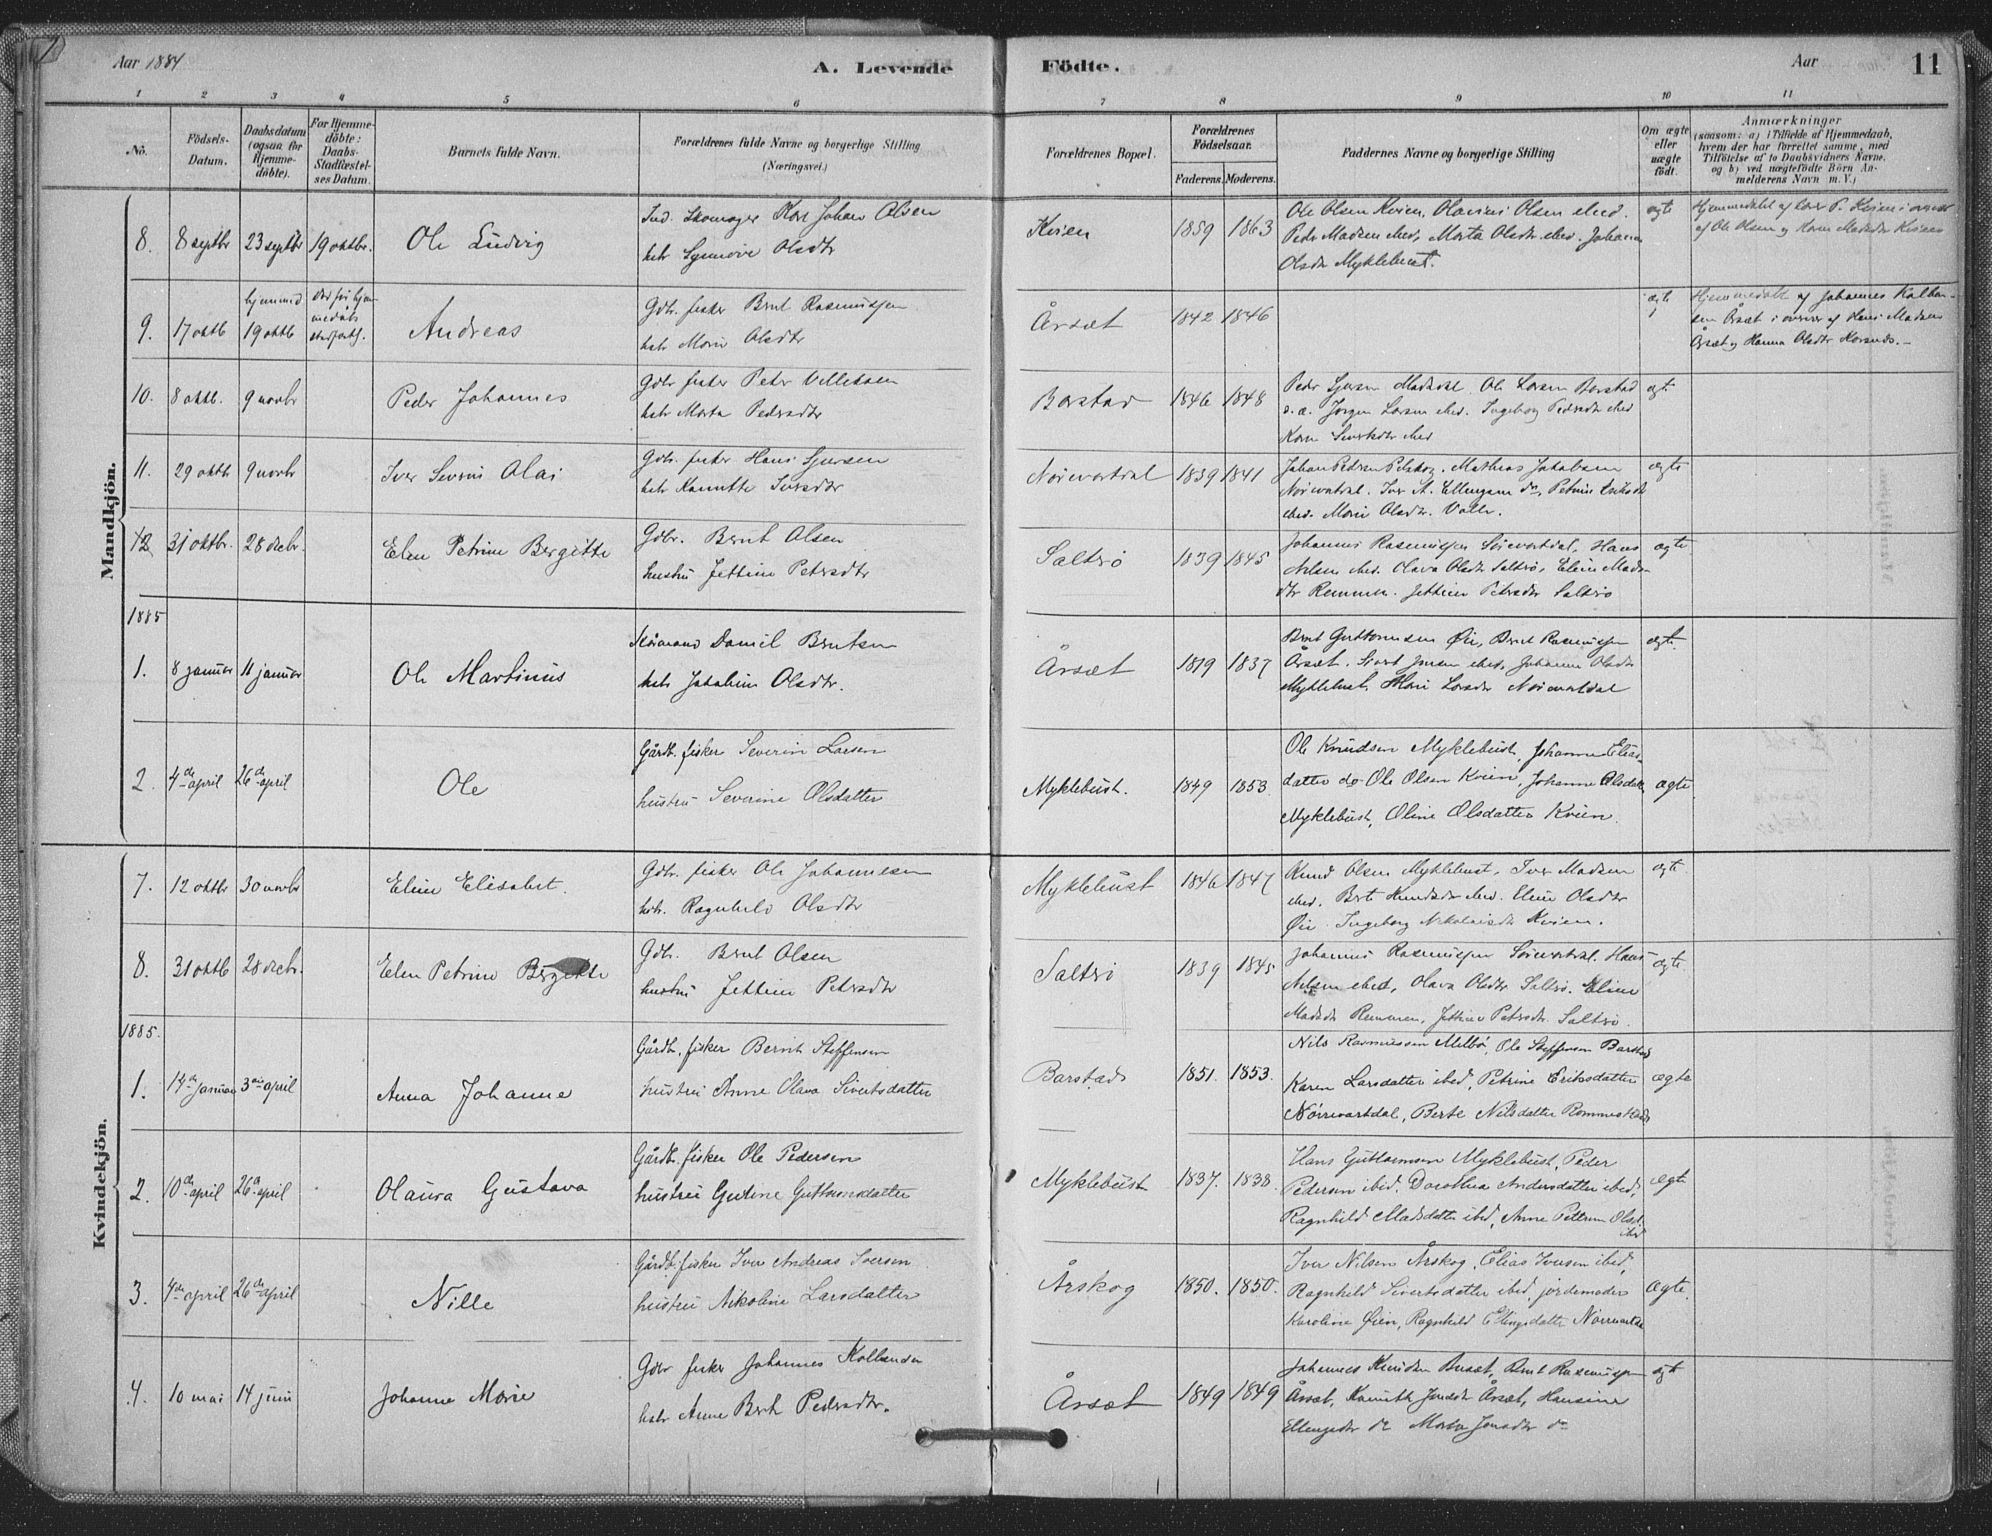 Aar 1884
A. Levende
Födte.
Aar
11
1 2 3 4 5 6 7 8 9 10 11
No.
Födsels-
Datum.
Daabsdatum
(ogsaa for
Hjemme-
döbte).
For Hjemme-
döbte:
Daabs-
Stadfæstel-
ses Datum.
Barnets fulde Navn.
Forældrenes fulde Navne og borgerlige Stilling
(Næringsvei.)
Forældrenes Bopæl.
Forældrenes
Födselsaar.
Faderens. Moderens.
Faddernes Navne og borgerlige Stilling
Om ægte
eller
uægte
født.
Anmærkninger
(saasom: a) i Tilfælde af Hjemmedaab,
hvem der har forrettet samme, med
Tilföielse af to Daabsvidners Navne.
og b) ved uægtefödte Börn An-
melderens Navn m. V.)
Mandkjön.
8. 8 septbr 23 septbr 19 oktbr. Ole Ludvig
Ind. Skomager Kare Johan Olsen
hstr Synnøve Olsdtr
Kvien 1859 1863
Ole Olsen Kvien, Olavius Olsen ibid.
Peder Madsen ibid, Marta Olsdtr ibid. Johanne
Olsdtr Myklebust.
ægte
Hjemmedøbt af Iver P. Kvien i overvær
af Ole Olsen og Karen Madsdtr Kvien
9. 17 oktb
hjemmed
19 oktb
Andreas
Gdb. fisker Bernt Rasmussen
hstr Marie Olsdtr
Årsæt 1842 1846
ægte
Hjemmedøbt af Johannes Kolben-
sen Årsæt i overvær af Hans Madsen
Årsæt og Hanna Olsdtr
10. 8 oktb. 9 novbr Peder Johannes
Gdbr fisker Peter Villiksen
hstr Marta Pedersdtr
Barstad 1846 1848
Ole Larsen Barstad
s. a. Jørgen Larsen ibid. Ingeborg Pedersdtr ibid
Karen Sivertsdtr ibid
ægte
11. 29 oktb 9 novbr Iver Severin Olai
Gdbr. fisker Hans Sjursen
hstr Kanutte Iversdtr
Nörevartdal 1839 1841
Johan Pedersen Pilskog. Mathias Jakobsen
Nörevartdal. Iver A. Ellingsen do, Petrine Eriksdtr
ibid. Marie Olsdtr. Valle.
ægte
12 31 oktbr. 28 decbr. Elen Petrine Bergitte
Gdbr. Bernt Olsen
hustru Jettine Petersdtr
Saltrö 1839 1845
Johannes Rasmussen Sörevartdal, Hans
Nilsen ibid. Olava Olsdtr Saltrö, Eline Mads-
dtr Remmen. Jettine Petersdtr Saltrö
ægte
1885
1. 8 januar 11 januar Ole Martinus
Kårmand Daniel Berntsen
hstr Jakobine Olsdtr.
Årsæt 1819 1837
Bernt Guttormsen Øie, Bernt Rasmussen
Årsæt. Sivert Jensen ibid, Johanne Olsdtr
Myklebust. Marie Larsdtr Nörevartdal
ægte.
2. 4de april 26de april Ole
Gårdb. fisker Severin Larsen
hustru Severine Olsdatter
Myklebust. 1849 1853.
Ole Knudsen Myklebust, Johanne Elias-
datter do Ole Olsen Kvien, Johanne Olsdatter
Myklebust, Oline Olsdatter Kvien.
ægte
Kvindekjön.
7. 12 oktbr 30 novbr Eline Elisabet.
Gdbr. fisker Ole Johannesen
hstr. Ragnhild Olsdtr
Myklebust 1846 1847
Knud Olsen Myklebust, Iver Madsen
ibid. Berte Knudsdtr ibid. Eline Olsdtr
Øie. Ingeborg Nikolaisdtr Kvien.
ægte
8. 31 oktb 28 decbr. Elen Petrine Bergitte
Gdb. Bernt Olsen
hustru Jettine Petersdtr
Saltrö 1839 1845
Johannes Rasmussen Sörevartdal. Hans
Nilsen ibid, Olava Olsdtr Saltrö. Eline
Madsdtr Remmen, Jettine Petersdtr. Saltrö.
ægte
1885.
1. 14de januar 3die april Anna Johanne
Gårdb. fisker Bernt Steffensen
hustru Anne Olava Sivertsdatter
Barstad 1851. 1853.
Nils Rasmussen Melbö, Ole Steffensen Barstad
Karen Larsdatter ibid, Petrine Eriksdatter
Nörrevartdal, Berte Nilsdatter
ægte
2. 10de april 26de april Olaura Gustava
Gårdb. fisker Ole Pedersen
hustru Gurine Guttormsdatter
Myklebust 1837. 1838.
Hans Guttormsen Myklebust, Peder
Pedersen ibid. Dorothea Andersdatter ibid,
Ragnhild Madsdatter ibid, Anne Petterine Olsd.
ibid
ægte
3. 4de april 26de april Nille
Gårdb. fisker Iver Andreas Iversen
hustru Nikoline Larsdatter
Årskog 1850. 1850.
Iver Nilsen Årskog, Elias Iversen ibid,
Ragnhild Sivertsdatter ibid, jordemoder
Karoline Øien, Ragnhild Ellingsdatter Nörrevartdal
ægte.
4. 10 mai 14 juni Johanne Marie
Gdbr fisker Johannes Kolbensen
hstr Anne Berte Pedersdtr.
Årsæt 1849 1849
Johannes Knudsen Buset, Bernt Rasmussen
Årsæt, Kanutte Jonsdtr Årsæt, Hansine
Ellingsdtr do Marta Jonsdtr do
ægte